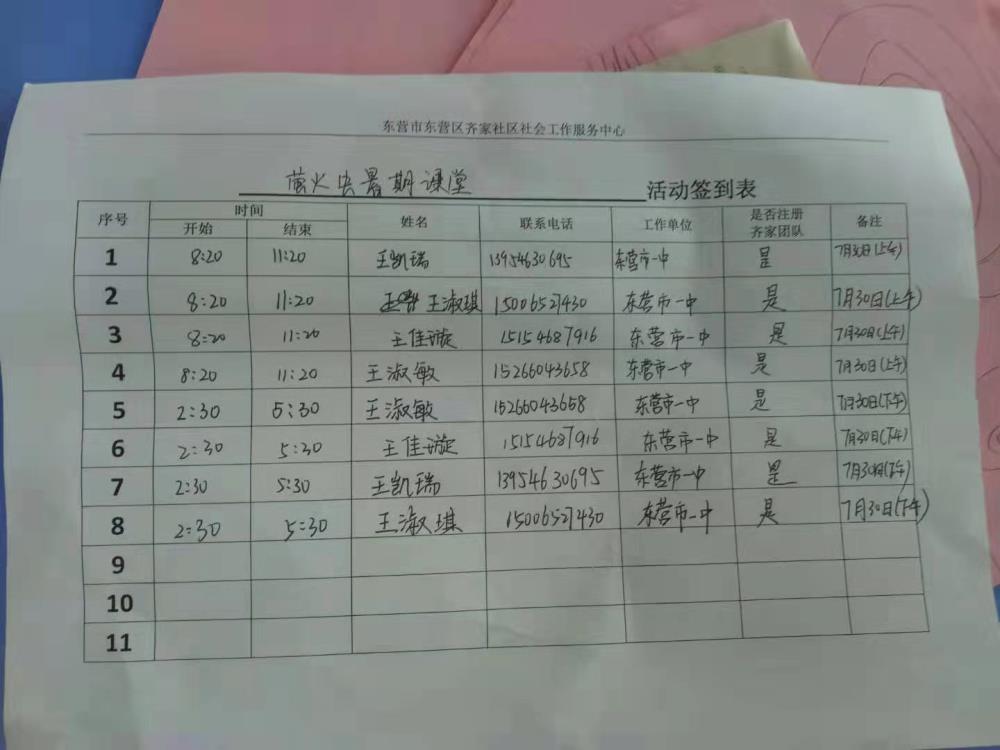 东营市东营区齐家社区社会工作服务中心
萤火虫暑期课堂 活动签到表
序号 时间 姓名 联系电话 工作单位 是否注册齐家团队 备注
开始 结束
1 8:20 11:20 王凯瑞 13954630695 东营市一中 是 7月30日(上午)
2 8:20 11:20 王淑琪 15006527430 东营市一中 是 7月30日(上午)
3 8:20 11:20 王佳璇 15154687916 东营市一中 是 7月30日(上午)
4 8:20 11:20 王淑敏 15266043658 东营市一中 是 7月30日(上午)
5 2:30 5:30 王淑敏 15266043658 东营市一中 是 7月30日(下午)
6 2:30 5:30 王佳璇 15154687916 东营市一中 是 7月30日(下午)
7 2:30 5:30 王凯瑞 13954630695 东营市一中 是 7月30日(下午)
8 2:30 5:30 王淑琪 15006527430 东营市一中 是 7月30日(下午)
9
10
11